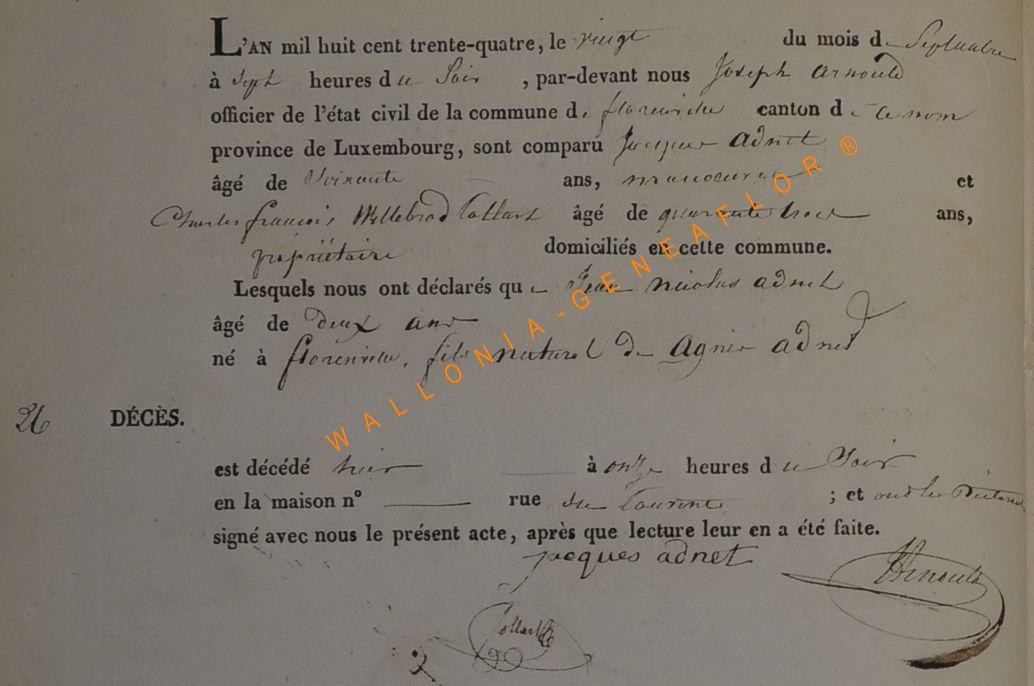 L'AN mil huit cent trente-quatre, le vingt du mois de Septembre
à Sept heures du Soir, par-devant nous Joseph arnould
officier de l'état civil de la commune de florenville canton de ce nom
province de Luxembourg, sont comparu Jacques adnet
âgé de Soixante ans, manoeuvre et
Charles françois Willebrod Collart âgé de quarante trois ans,
propriétaire domiciliés en cette commune.
Lesquels nous ont déclarés que Jean nicolas adnet
âgé de deux ans
né à florenville, fils naturel de Agnès adnet
26 DÉCÈS.
est décédé hier à onze heures du Soir
en la maison n° rue du ; et ont les
signé avec nous le présent acte, après que lecture leur en a été faite.
jacques adnet
Arnould
Collart
WALLONIA-GENEAFLOR ®